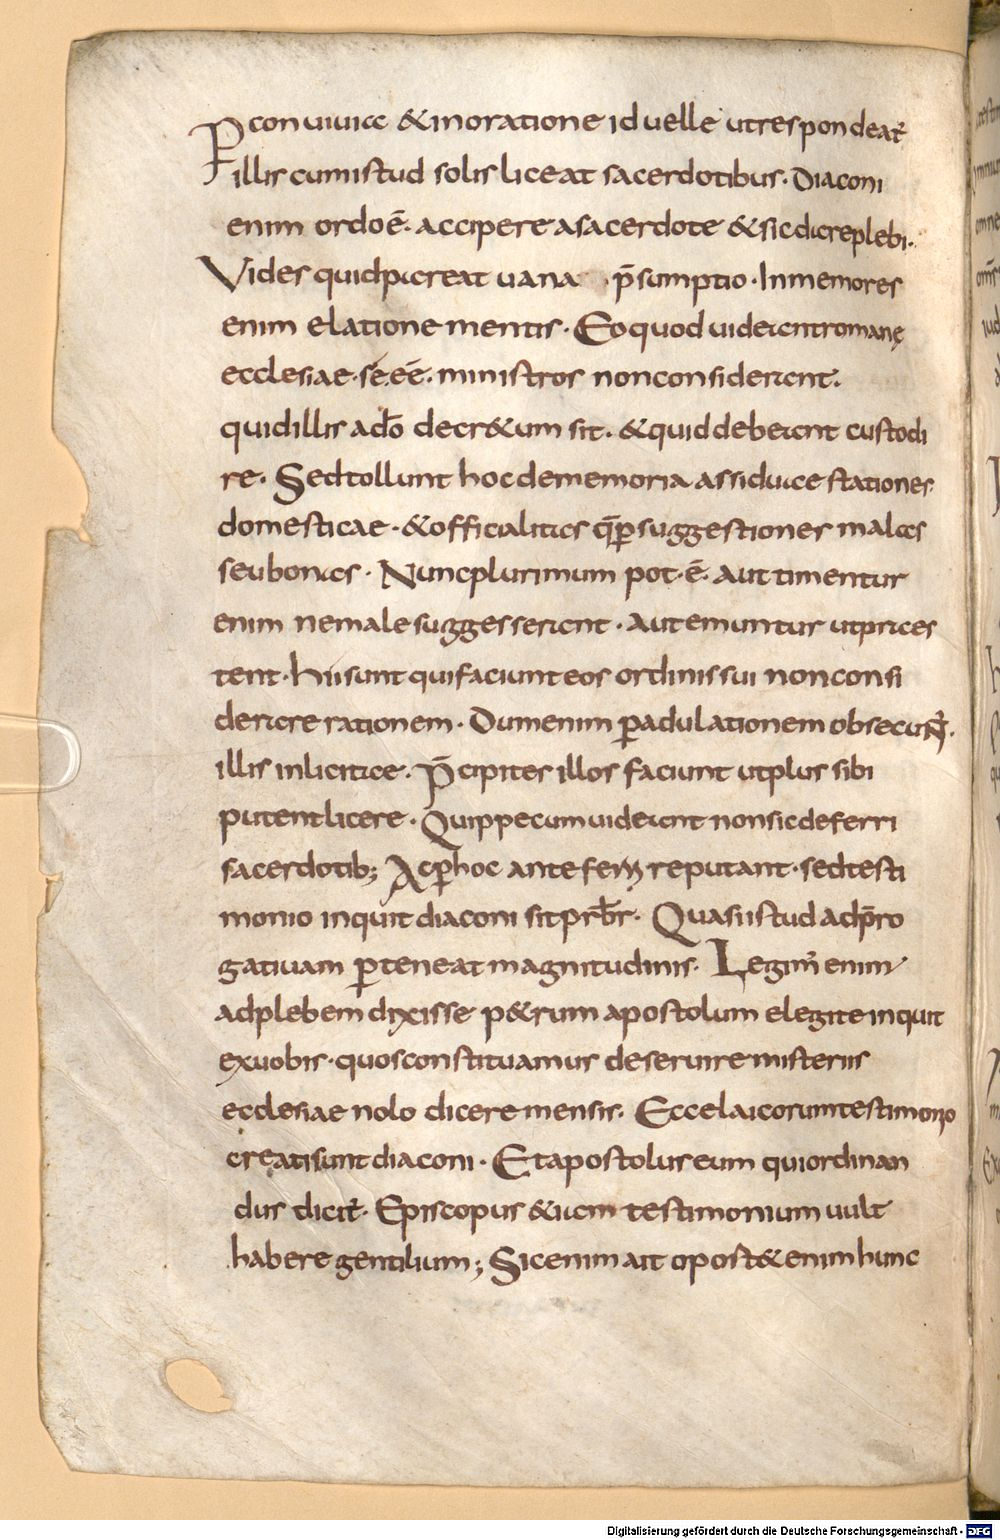 P conuiuia & in oratione id uelle ut respondeat᷑
illis cum istud solis liceat sacerdotibus. Diaconi
enim ordo ē. accipere a sacerdote & sic dare plebi.
Vides quid pariat uana p̄sumptio. Inmemores
enim elatione mentis. Eo quod uideant romanę
ecclesiae. se. eē. ministros non considerant.
quid illis a do decr&um sit. & quid debeant custodi
re. Sed tollunt hoc de memoria assiduae stationes
domesticae. & officialitas q̄ p̱ suggestiones malas
seu bonas. Nunc plurimum pot. ē. Aut timentur
enim ne male suggesserant. aut emuntur ut praes
tent. hii sunt qui faciunt eos ordinis sui non consi
derare rationem. Dum enim p̱ adulationem obsecuN᷑.
illis inlicitae. P̄cipites illos faciunt ut plus sibi
putent licere. Quippe cum uideant non sic deferri
sacerdotib; Ac p̱ hoc ante ferri se putant. sed testi
monio inquit diaconi fit prb̄r. Quasi istud ad p̄ro
gatiuam p̱teneat magnitudinis. Legim᷑ enim
ad plebem dixisse p&rum apostolum elegite inquit
ex uobis. quos constituamus deseruire misteriis
ecclesiae nolo dicere mensis. Ecce laicorum testimonio
creati sunt diaconi. Et apostolus eum qui ordinan
dus dicit᷑. Episcopus &iam testimonium uult
habere gentilium; Sic enim ait oport& enim hunc
Digitalisierung gefördert durch die Deutsche Forschungsgemeinschaft - DFG